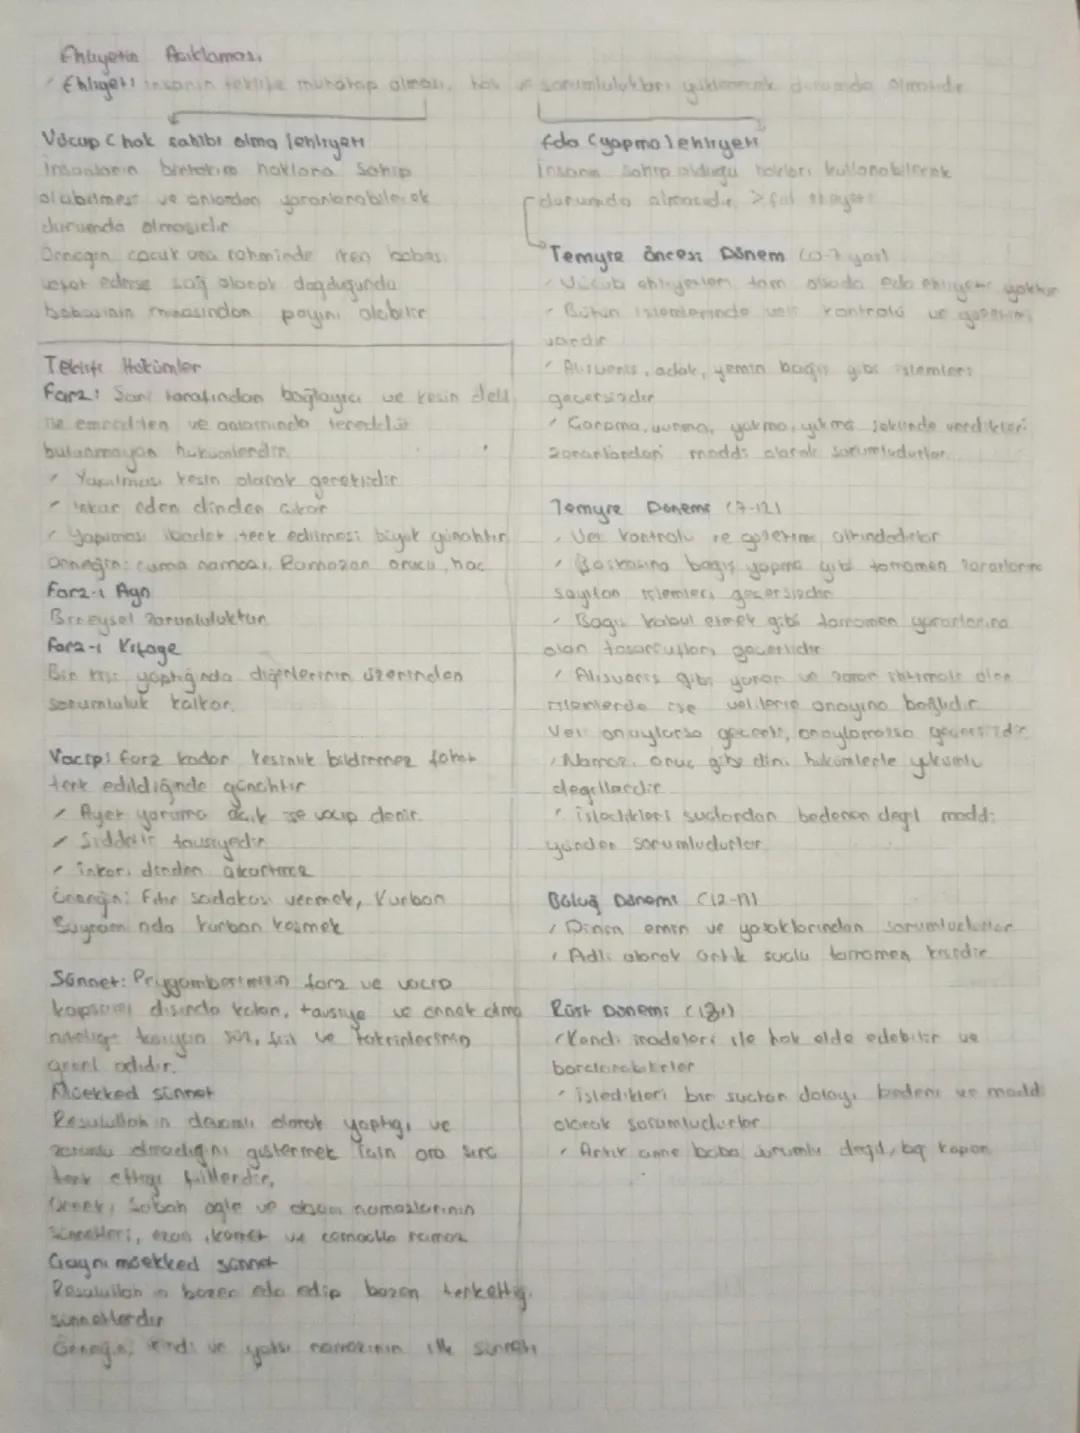 Ehliyetin Açıklaması
✓ Ehliyet: insanın teklife muhatap olması, hak ve sorumlulukları yüklenecek durumda olmasıdır
Vücup (hak sahibi olma) ehliyeti
İnsanların birtakım haklara sahip
olabilmesi ve onlardan yararlanabilecek
durumda olmasıdır
Örneğin çocuk ana rahminde iken babası
vefat ederse sağ olarak doğduğunda
babasının mirasından payını alabilir
Teklifi Hükümler
Farz: Şari tarafından bağlayıcı ve kesin delil
ile emredilen ve anlamında tereddüt
bulunmayan hükümlerdir
✓ Yapılması kesin olarak gereklidir
✓ inkar eden dinden çıkar
✓ Yapılması ibadet, terk edilmesi büyük günahtır
Örneğin: cuma namazı, Ramazan orucu, hac
Farz-ı Ayn
Bireysel zorunluluktur
Farz-ı Kifaye
Bir kişi yaptığında diğerlerinin üzerinden
sorumluluk kalkar.
Vacip: farz kadar kesinlik bildirmez fakat
terk edildiğinde günahtır
✓ Ayet yoruma açık ise vacip denir.
✓ Şiddetli tavsiyedir
✓ inkarı dinden çıkartmaz
Örneğin: Fıtır sadakası vermek, Kurban
Bayramı nda kurban kesmek
Sünnet: Peygamberimizin farz ve vacip
kapsamı dışında kalan, tavsiye ve örnek olma
niteliği taşıyan söz, fiil ve takrirlerinin
genel adıdır.
Müekked sünnet
Resulullah ın devamlı olarak yaptığı ve
zorunlu olmadığını göstermek için ara sıra
terk ettiği fiillerdir.
Örnek: Sabah öğle ve akşam namazlarının
sünnetleri, ezan, kamet ve cemaatle namaz
Gayrı müekked sünnet
Resulullah ın bazen eda edip bazen terkettiği
sünnetlerdir
Örneğin, ikindi ve yatsı namazının ilk sünneti
Eda (yapma) ehliyeti
İnsanın sahip olduğu hakları kullanabilecek
durumda olmasıdır > fiil ehliyeti
Temyiz öncesi Dönem (0-7 yaş)
✓ Vücub ehliyetleri tam olsada eda ehliyeti yoktur
✓ Bütün işlemlerinde veli kontrolü ve gözetimi
vardır
✓ Alışveriş, adak, yemin bağış gibi işlemleri
geçersizdir
✓ Çarpma, vurma, yakma, yıkma şeklinde verdikleri
zararlardan maddi olarak sorumludurlar.
Temyiz Dönemi (7-12)
✓ Veli kontrolü ve gözetimi altındadırlar
✓ Başkasına bağış yapma gibi tamamen zararlarına
sayılan işlemleri geçersizdir
✓ Bağış kabul etmek gibi tamamen yararlarına
olan tasarrufları geçerlidir
✓ Alışveriş gibi yarar ve zarar ihtimali olan
işlemlerde ise velilerin onayına bağlıdır
Veli onaylarsa geçerli, onaylamazsa geçersizdir
✓ Namaz, oruç gibi dini hükümlerle yükümlü
değillerdir
✓ işledikleri suçlardan bedenen değil maddi
yönden sorumludurlar
Büluğ Dönemi (12-17)
✓ Dinin emir ve yasaklarından sorumludurlar
✓ Adli olarak artık suçlu tamamen kişidir
Rüşt Dönemi (18+)
✓ Kendi iradeleri ile hak elde edebilir ve
borçlanabilirler
✓ işledikleri bir suçtan dolayı bedeni ve maddi
olarak sorumludurlar
✓ Artık anne baba sorumlu değil,